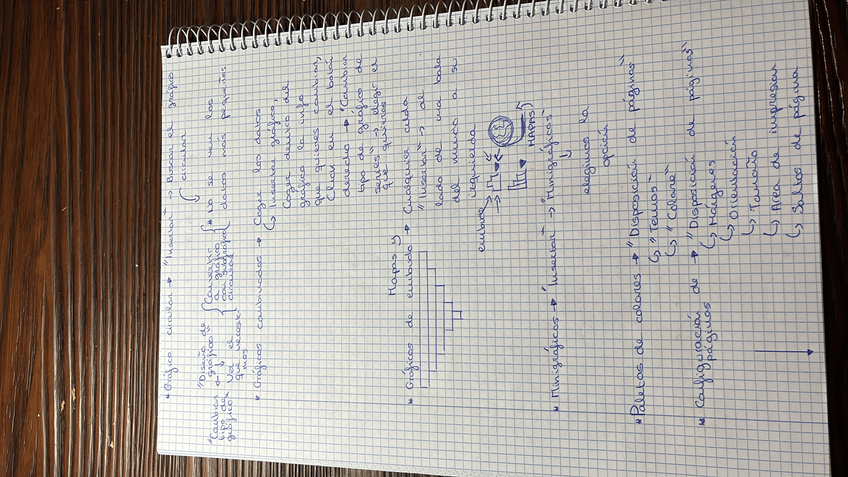 * Gráfico circular → "Insertar" → Buscar el gráfico circular
"Diseño de gráfico"
"Cambiar tipo de gráfico"
Convertir a gráfico con subgráfico circular
* no se ven los datos más pequeños
* Gráficos combinados → Coger los datos
↳ Insertar gráfico,
Coger dentro del
gráfico la info
que quieres cambiar,
Click en el botón
derecho → "Cambiar
tipo de gráfico de
series" → elegir el
que quieras
Mapas y
* Gráficos de embudo → Cualquier celda
"Insertar" → al
lado de una bola
del mundo a su
izquierda
embudo
MAPAS
* Minigráficos → "Insertar" → "Minigráficos"
elegimos la
opción
* Paletas de colores → "Disposición de páginas"
↳ "Temas"
↳ "Colores"
* Configuración de páginas → "Disposición de páginas"
↳ Márgenes
↳ Orientación
↳ Tamaño
↳ Área de impresión
↳ Saltos de página